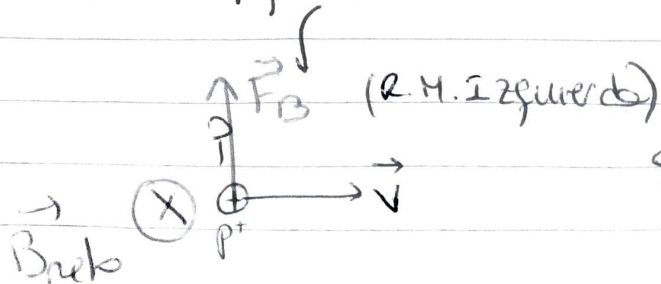 F_B (R.M. Izquierdo)
V
p+
B neto